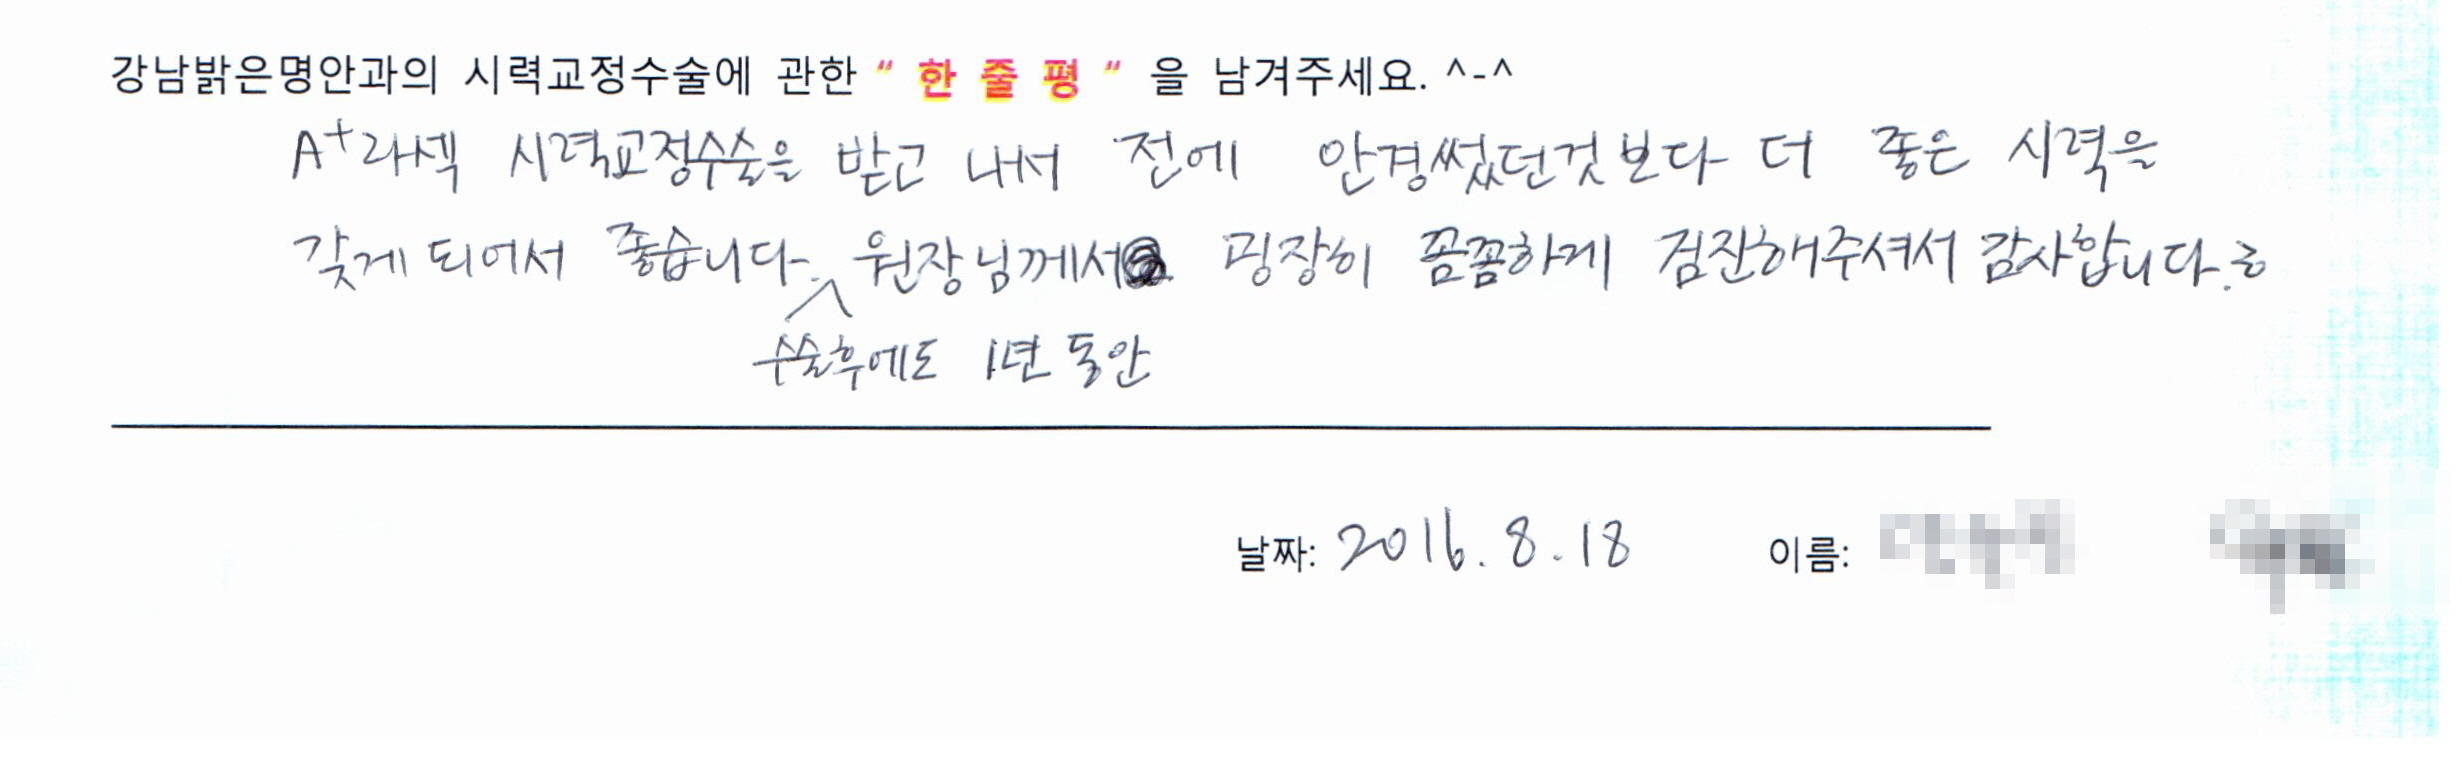 강남밝은명안과의 시력교정수술에 관한 " 한 줄 평 " 을 남겨주세요. ^-^
A+라섹 시력교정수술을 받고 나서 전에 안경썼던것보다 더 좋은 시력을
갖게 되어서 좋습니다. 원장님께서 굉장히 꼼꼼하게 검진해주셔서 감사합니다.
수술후에도 1년 동안
날짜: 2016. 8. 18 이름: